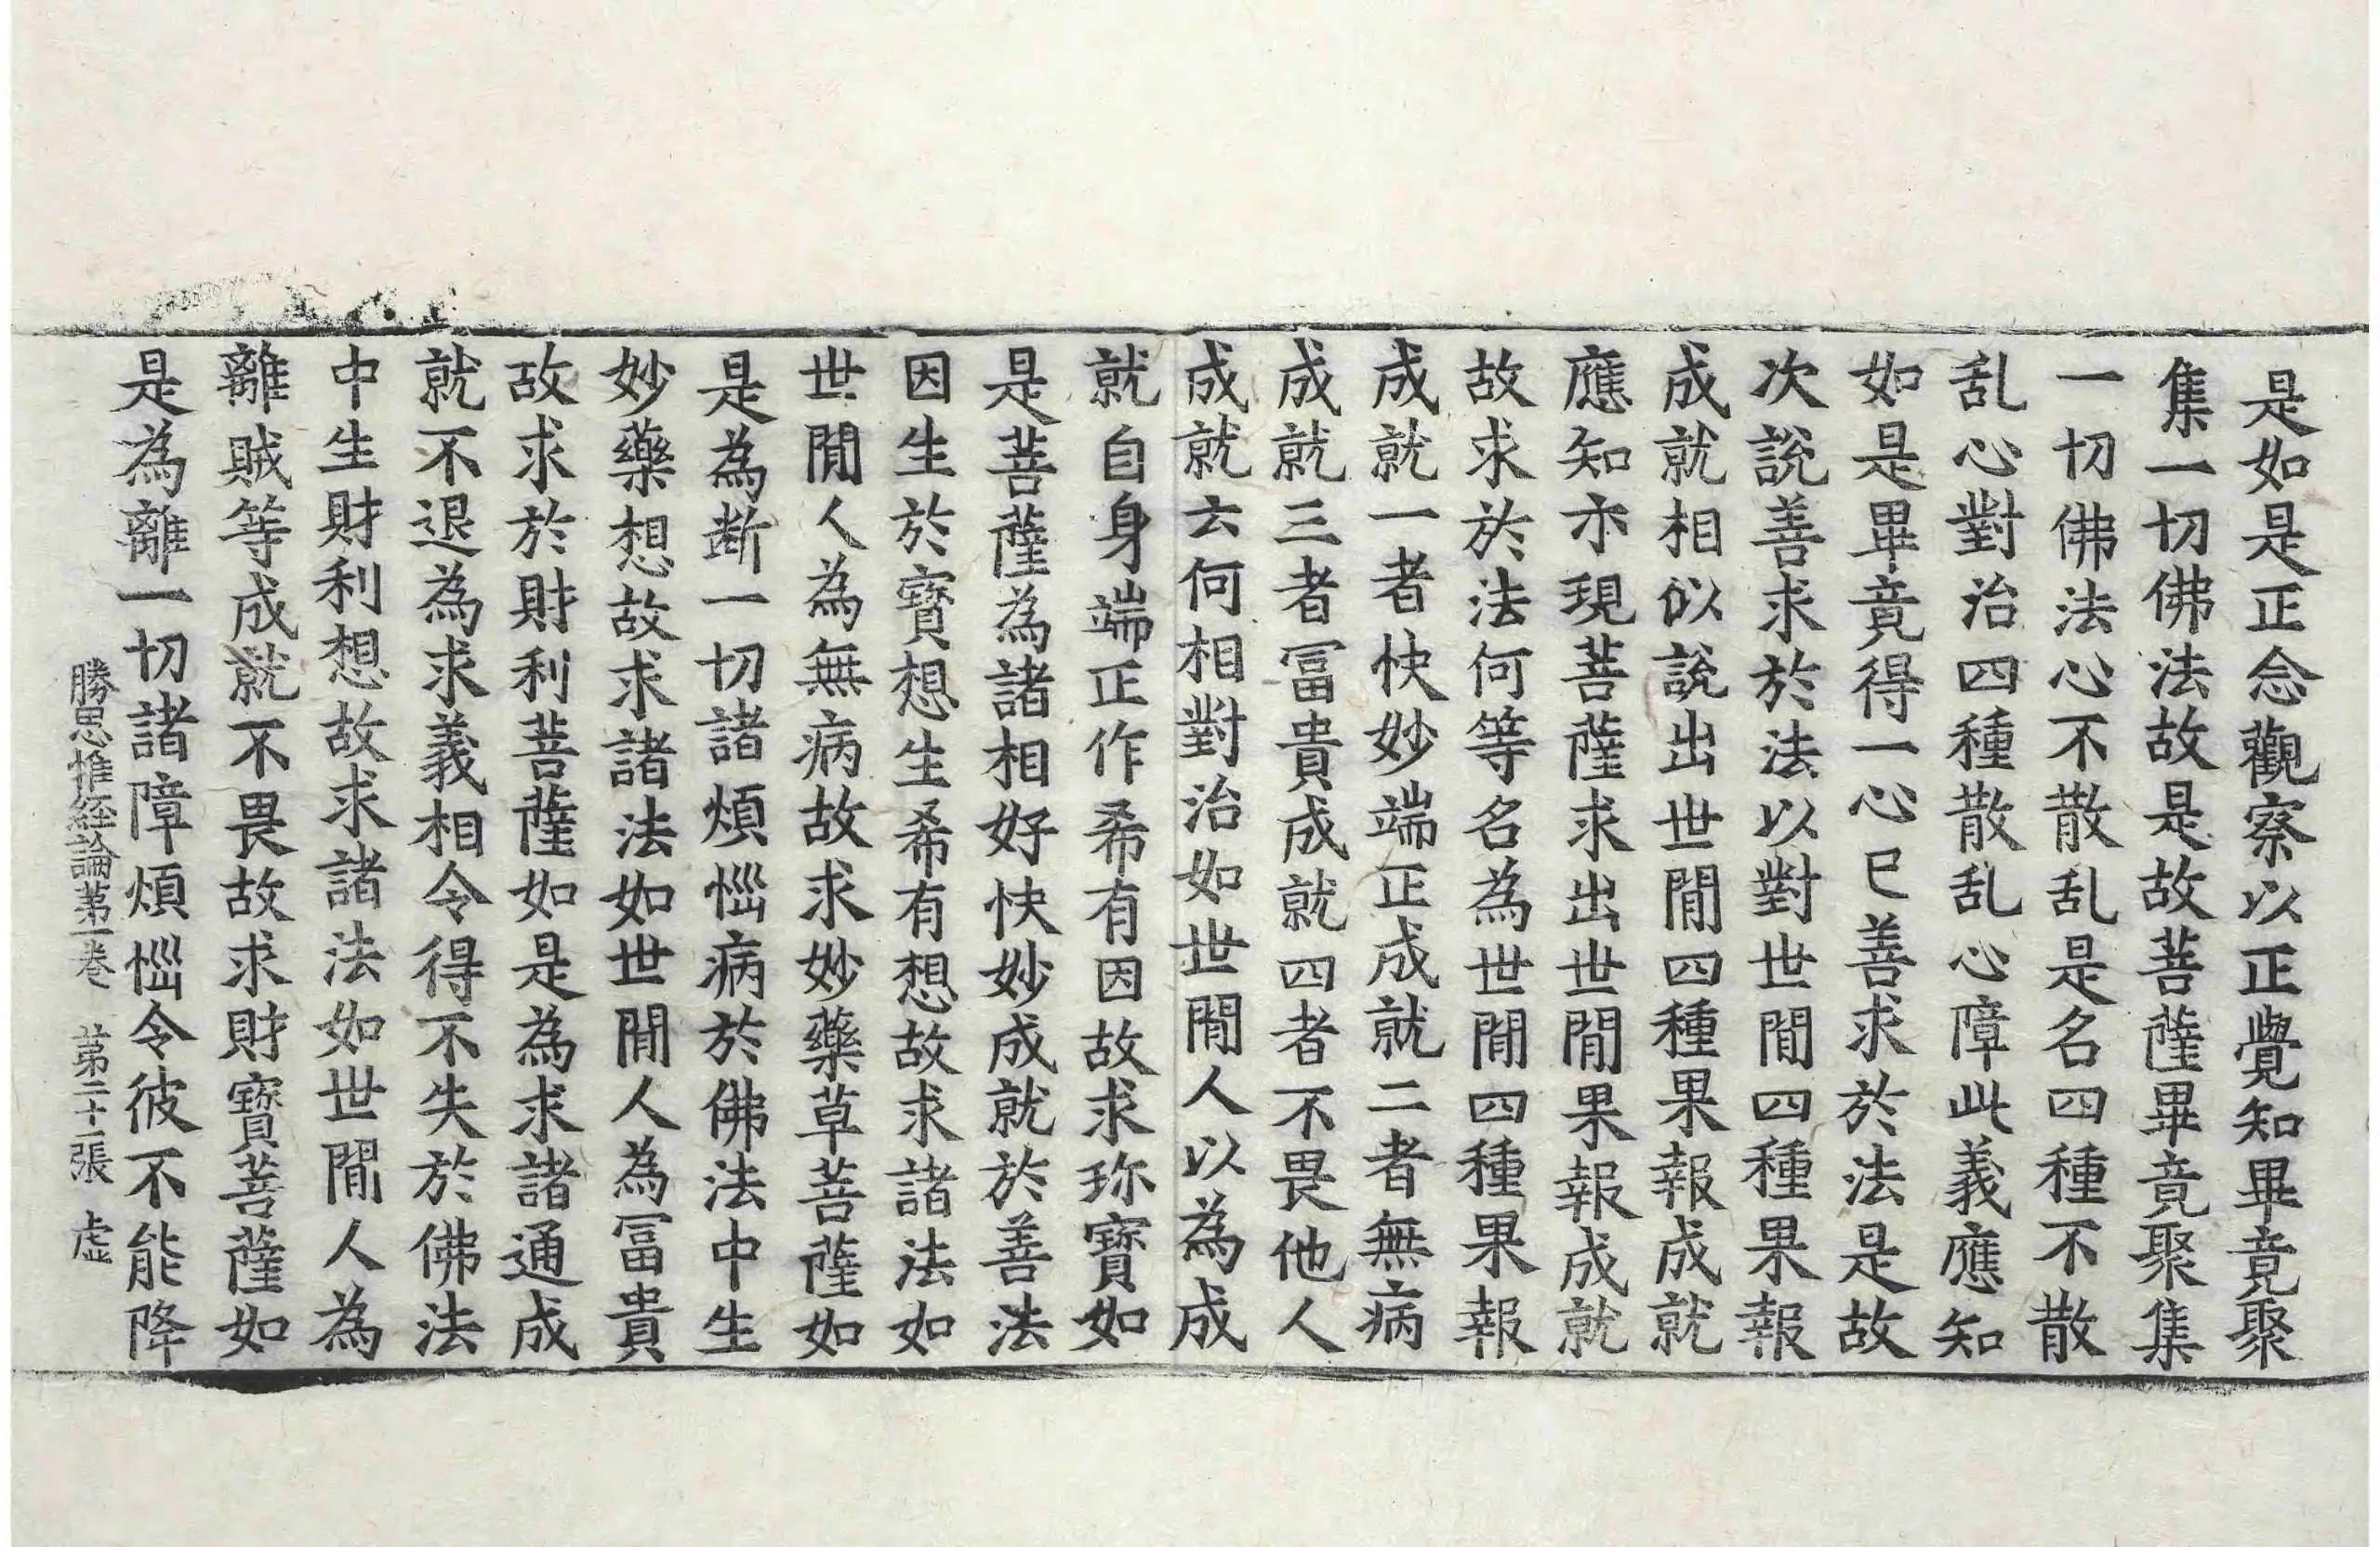 是如是正念觀察以正覺知畢竟聚
集一切佛法故是故菩薩畢竟聚集
一切佛法心不散乱是名四種不散
乱心對治四種散乱心障此義應知
如是畢竟得一心已善求於法是故
次說善求於法以對世間四種果報
成就相似說出世間四種果報成就
應知示現菩薩求出世間果報成就
故求於法何等名為世間四種果報
成就一者快妙端正成就二者無病
成就三者冨貴成就四者不畏他人
成就云何相對治如世間人以為成
就自身端正作希有因故求珎寶如
是菩薩為諸相好快妙成就於善法
因生於寶想生希有想故求諸法如
世間人為無病故求妙藥草菩薩如
是為断一切諸煩惱病於佛法中生
妙藥想故求諸法如世間人為冨貴
故求於財利菩薩如是為求諸通成
就不退為求義相令得不失於佛法
中生財利想故求諸法如世間人為
離賊等成就不畏故求財寶菩薩如
是為離一切諸障煩惱令彼不能降
勝思惟経論苐一卷 苐二十一張 虛